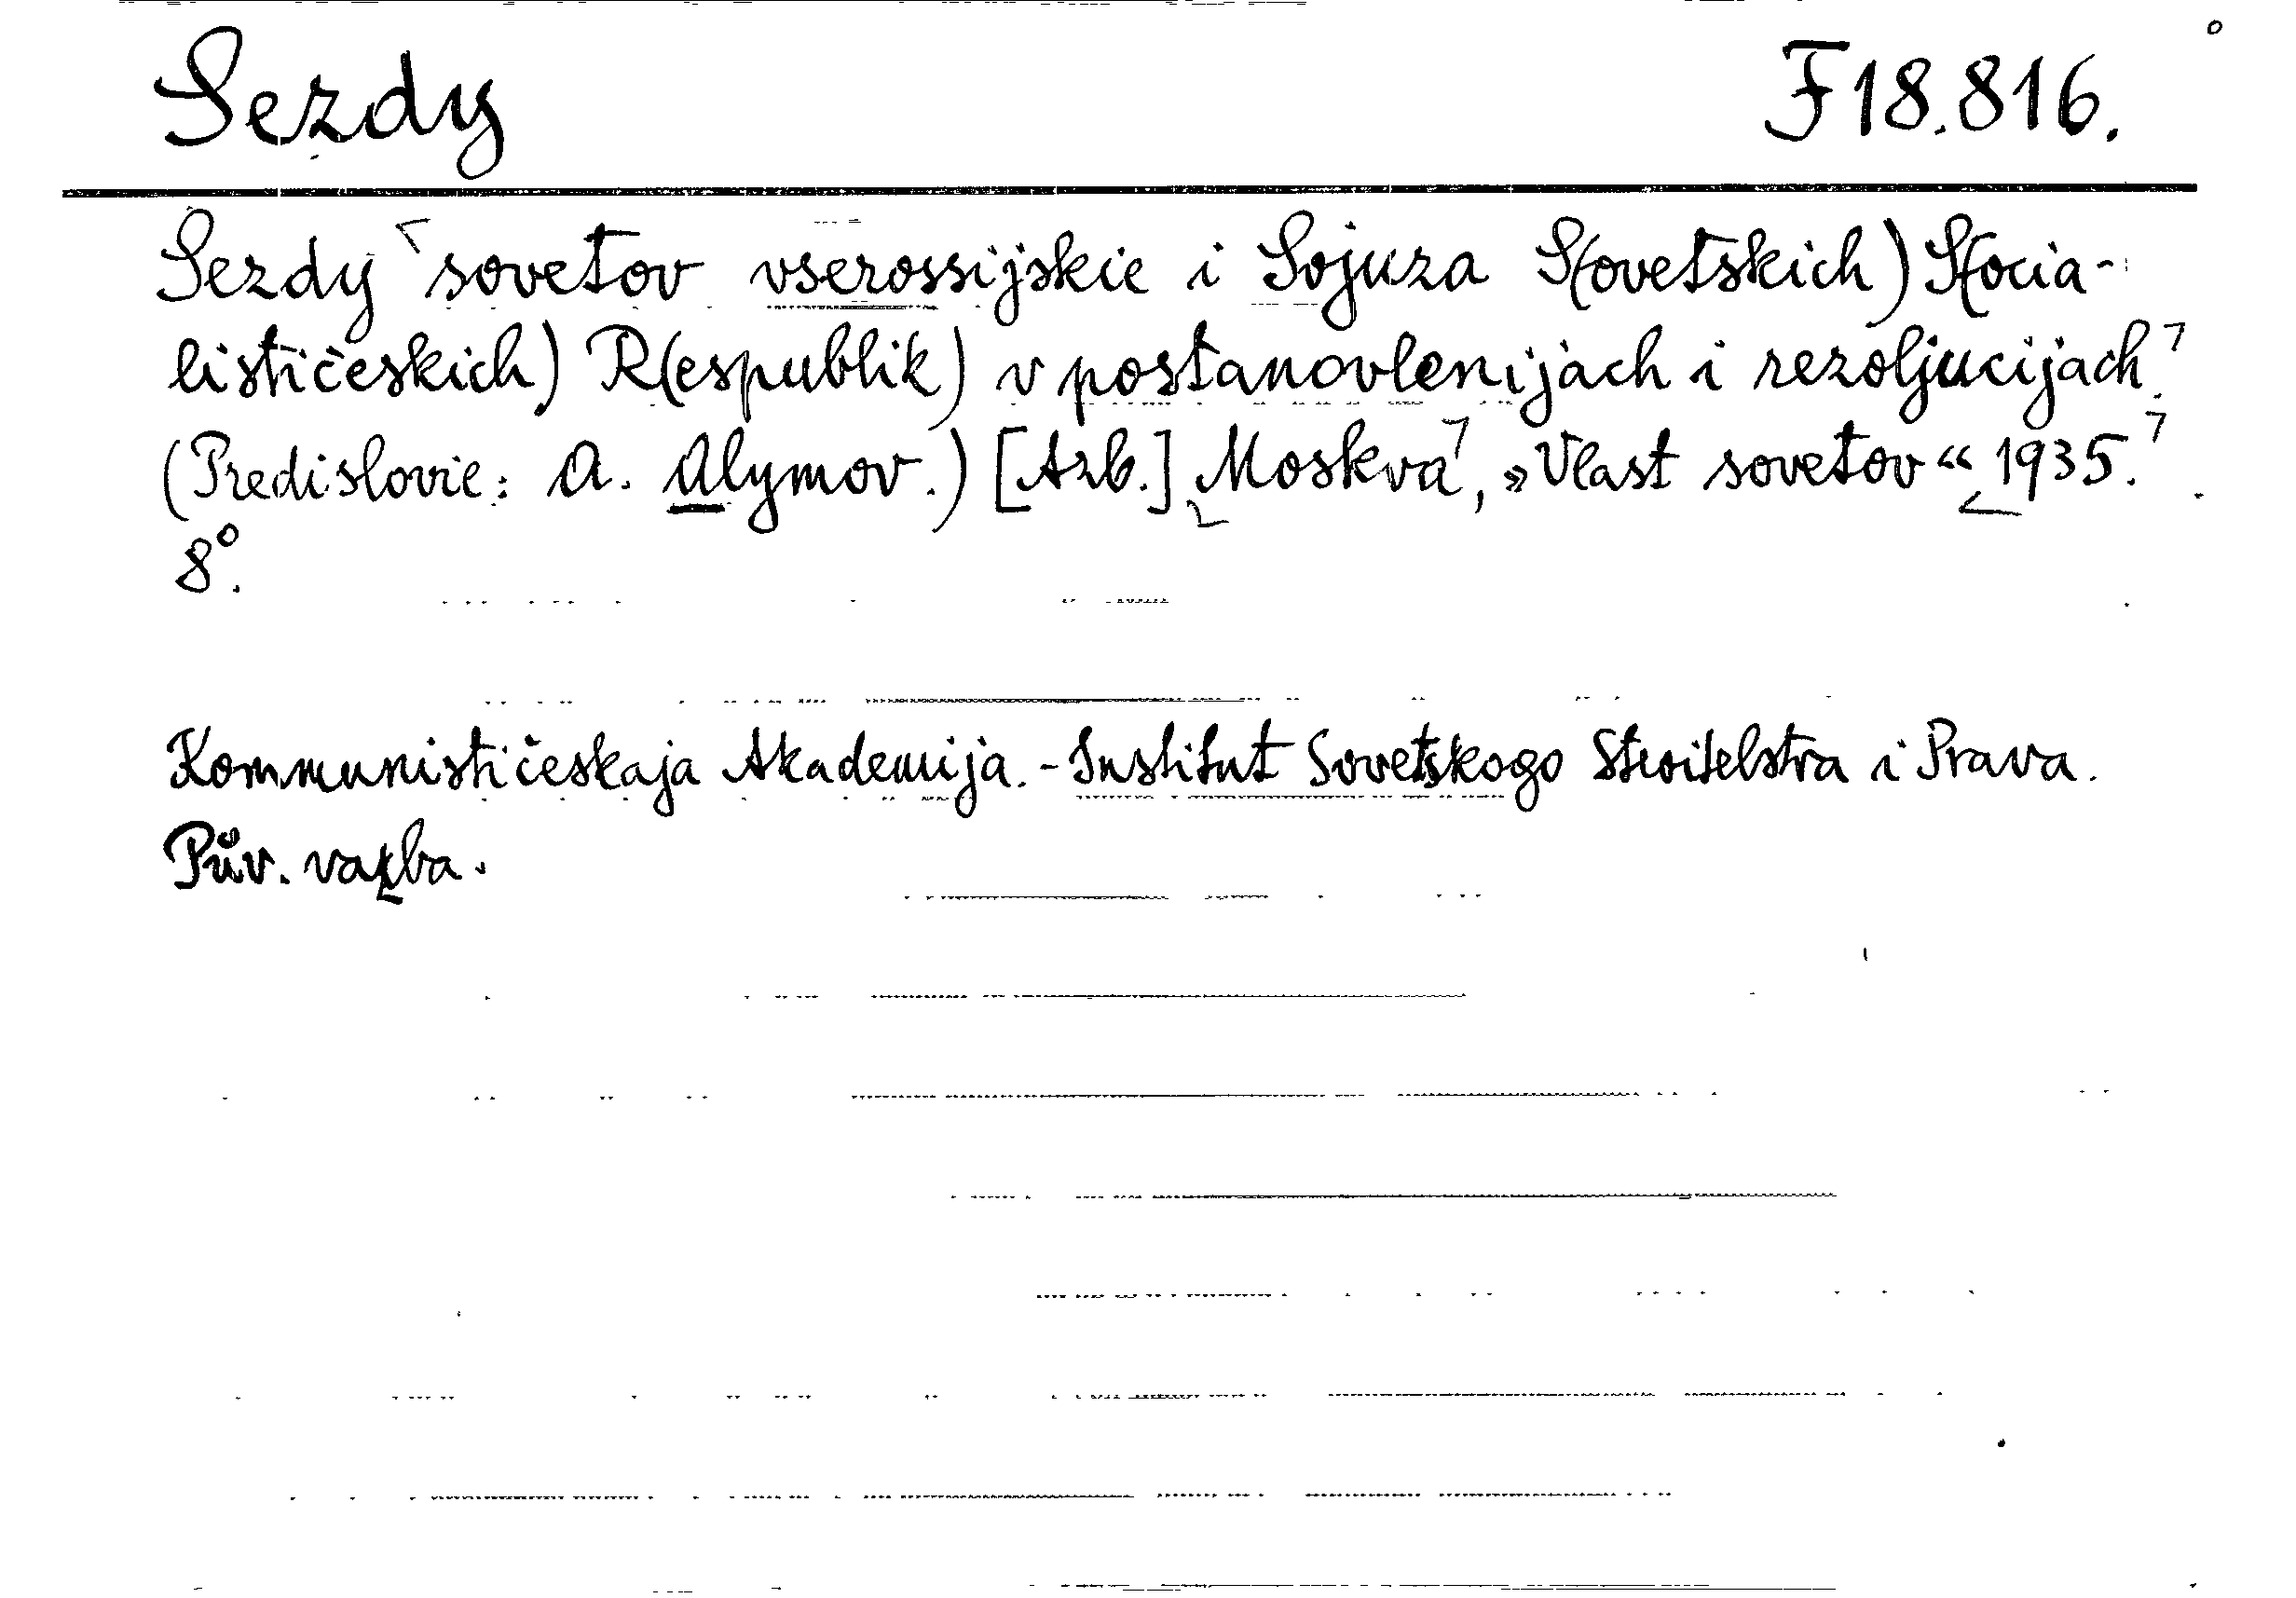 Sezdy F 18.816.
Sezdy sovetov vserossijskie i Sojuza S(ovetskich) S(ocia-
lističeskich) R(espublik) v postanovlenijach i rezoljucijach.
(Predislovie: A. Alymov.) [Azb.] Moskva, »Vlast sovetov« 1935.
8°.
Kommunističeskaja Akademija. - Institut Sovetskogo Stroitelstva i Prava.
Pův. vazba.